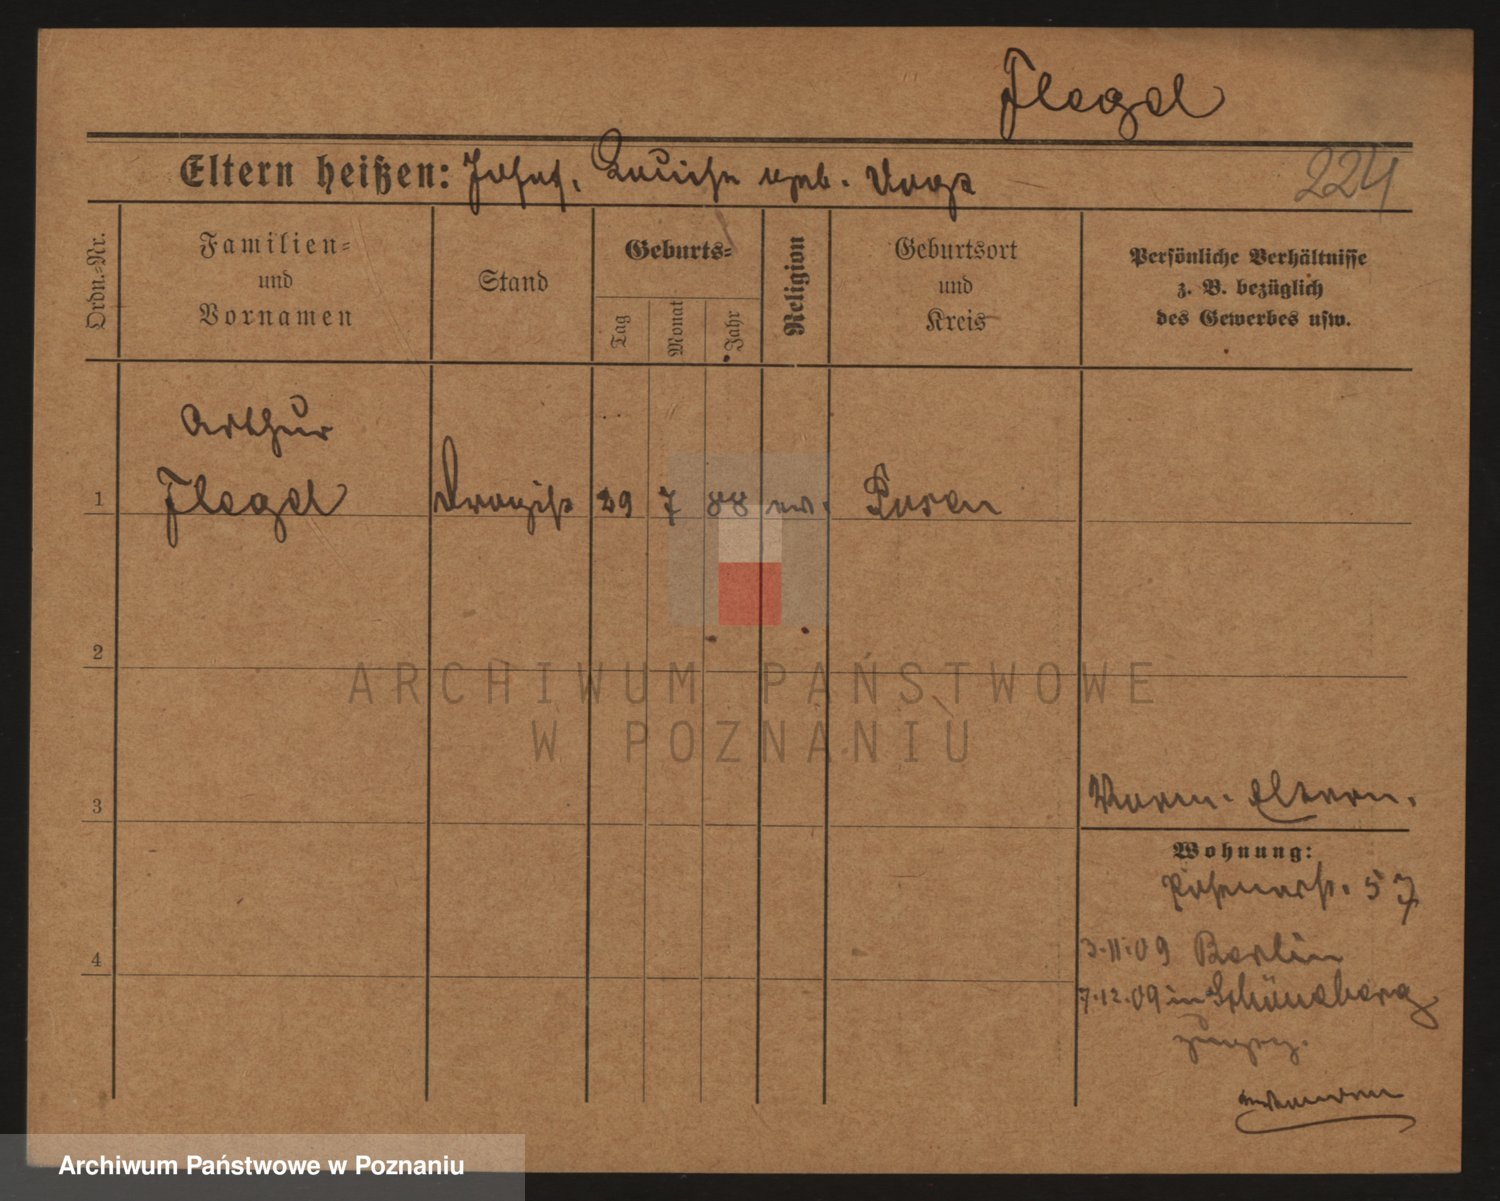 Flegel
Eltern heißen: Josef, Louise geb. Vogt
224
Ordn.=Nr.
Familien=
und
Vornamen
Stand
Geburts=
Tag
Monat
Jahr
Religion
Geburtsort
und
Kreis
Persönliche Verhältnisse
z. B. bezüglich
des Gewerbes usw.
Arthur
1 Flegel Drogist 29 7 88 ev. Posen
2
ARCHIWUM PAŃSTWOWE
W POZNANIU
3
Eltern.
Wohnung:
57
4
3.11.09 Berlin
7.12.09 in Schöneberg
Archiwum Państwowe w Poznaniu